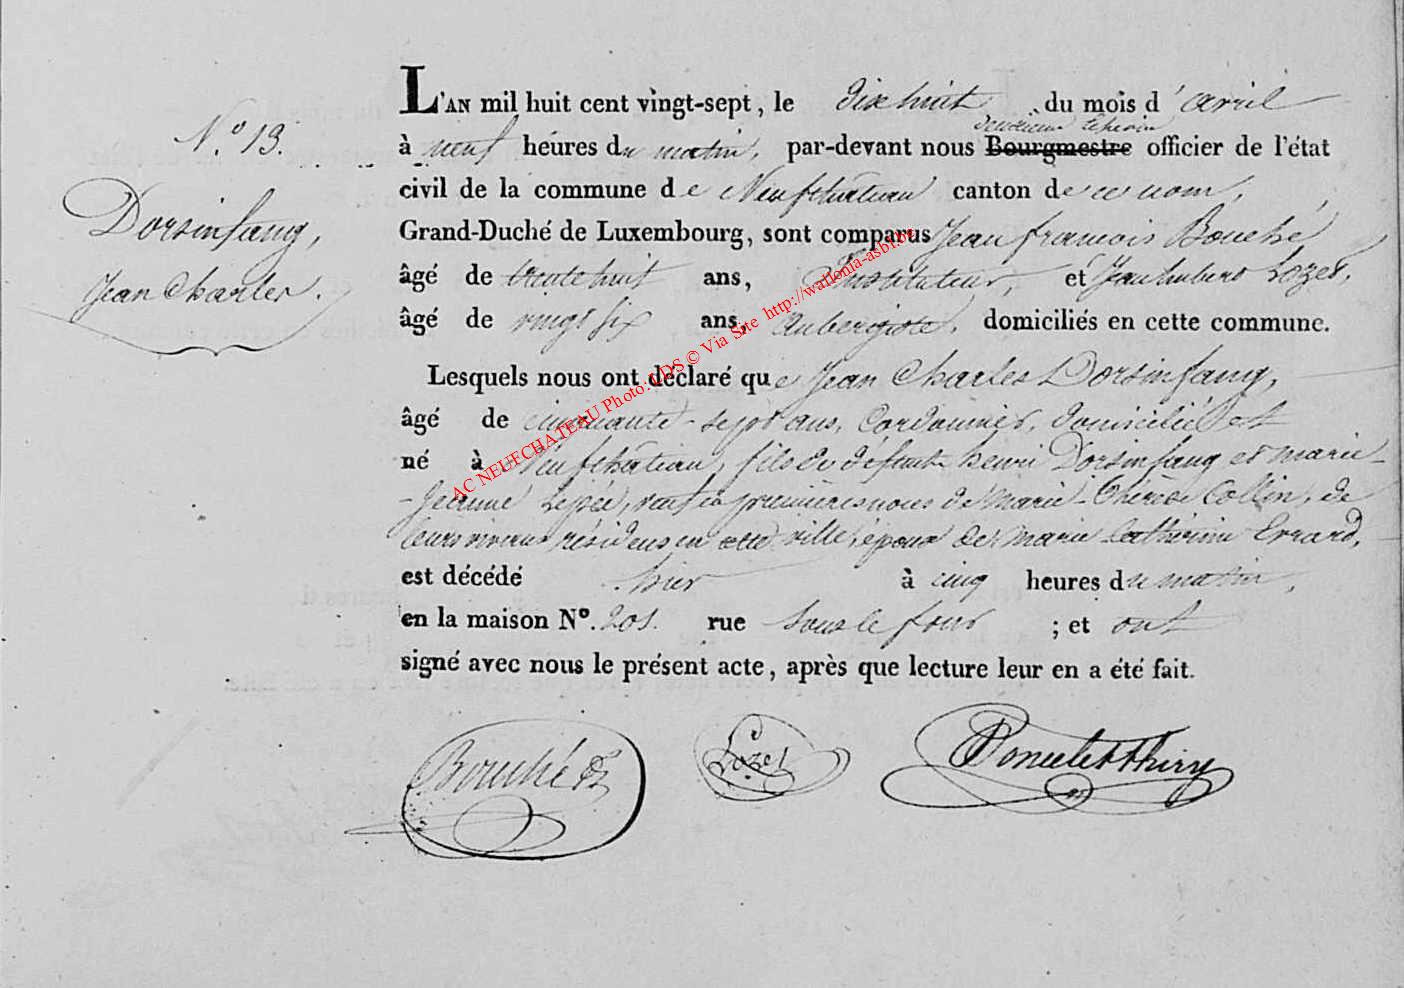 L'AN mil huit cent vingt-sept, le dix huit du mois d'avril
N.° 13.
deuxième Echevin
à neuf héures du matin, par-devant nous Bourgmestre officier de l'état
civil de la commune de Neufchateau canton de ce nom,
Dorsinfang,
Grand-Duché de Luxembourg, sont comparus Jean françois Bouché
Jean Charles.
âgé de trente huit ans, Instituteur, et Jean hubert Lozet,
âgé de vingt six ans, aubergiste, domiciliés en cette commune.
Lesquels nous ont déclaré que Jean Charles Dorsinfang,
âgé de cinquante-sept ans, Cordonnier, domicilié et
né à Neufchateau, fils de défunts henri Dorsinfang et marie
Jeanne Lepée, veuf en premières noces de Marie-Thérèse Collin, de
leurs vivans résidens en cette ville, époux de marie Catherine Errard,
est décédé hier à cinq heures du matin,
en la maison N°. 201. rue Sous le four ; et ont
signé avec nous le présent acte, après que lecture leur en a été fait.
Bouché Lozet Poncelet Thiry
AC NEUFCHATEAU Photo: LDS © Via Site http://wallonia-asbl.be